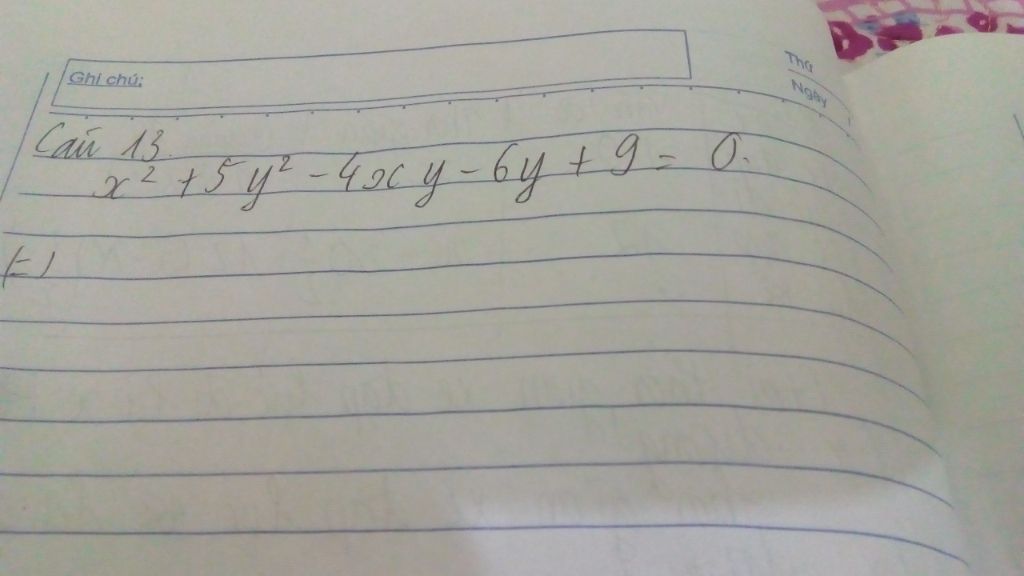 Ghi chú:
Thứ
Ngày
Câu 13.
x² + 5y² - 4xy - 6y + 9 = 0.
(=)